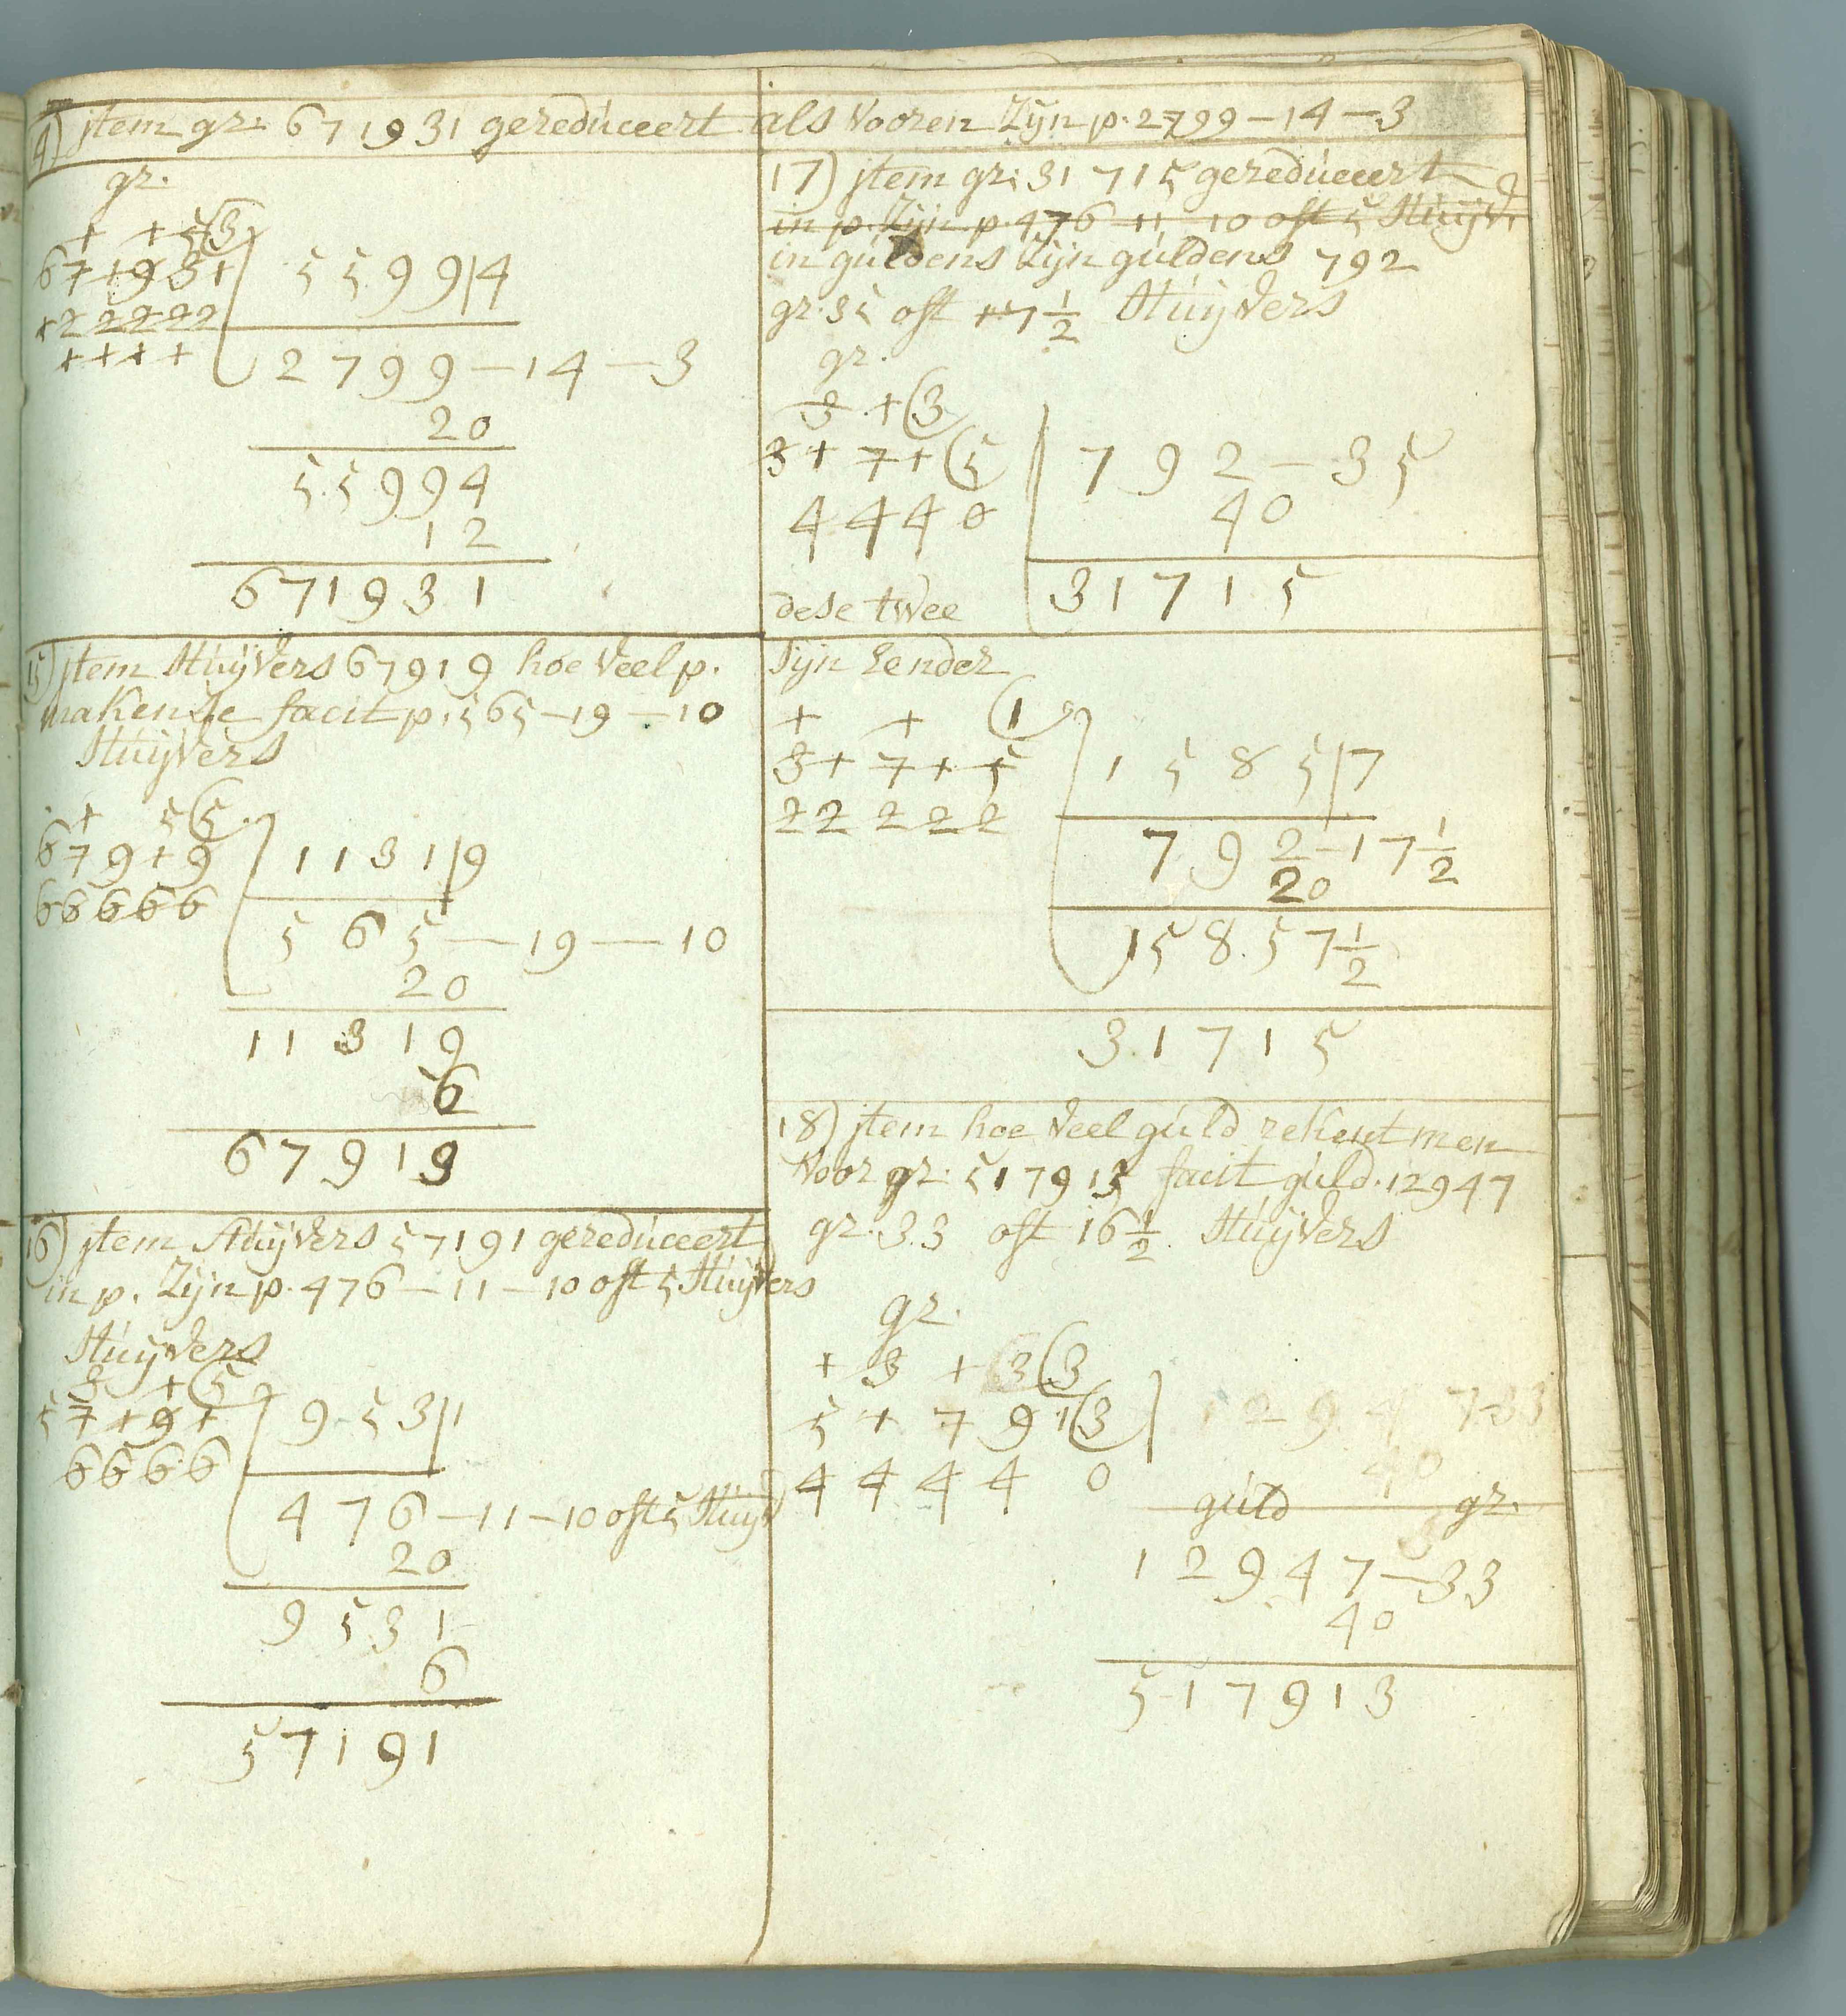 4) jtem gr: 671931 gereduceert als vooren Zijn p. 2799 – 14 – 3
gr.
+ + 5(3
671931 5599|4
122222
++++ 2799 – 14 – 3
20
55994
12
671931
15) jtem Stuÿvers 67919 hoe veel p.
maken se facit p. 565 – 19 – 10
Stuÿvers
+ 5(5
67919 1131|9
66666
565 – 19 – 10
20
11319
6
67919
16) jtem Stuÿvers 57191 gereduceert
in p. Zijn p. 476 – 11 – 10 oft 5 Stuÿvers
Stuÿvers
3 +(5
57191 953|1
6666
476 – 11 – 10 oft 5 Stuÿv
20
9531
6
57191
17) jtem gr: 31715 gereduceert
in p. Zijn p. 476 11 10 oft 5 Stuÿv.
in guldens Zijn guldens 792
gr. 35 oft 17 1/2 Stuÿvers
gr.
3 +(3
3171(5 792 – 35
4440 40
dese twee 31715
Sijn Eender
+ + (1
31715 1585|7
22222
792 – 17 1/2
20
15857 1/2
31715
18) jtem hoe veel guld rekent men
voor gr: 517913 facit guld. 12947
gr. 33 oft 16 1/2 Stuÿvers
gr.
+ 3 + 3(3
51791(3 12947 33
44440 40
guld gr.
12947 – 33
40
517913